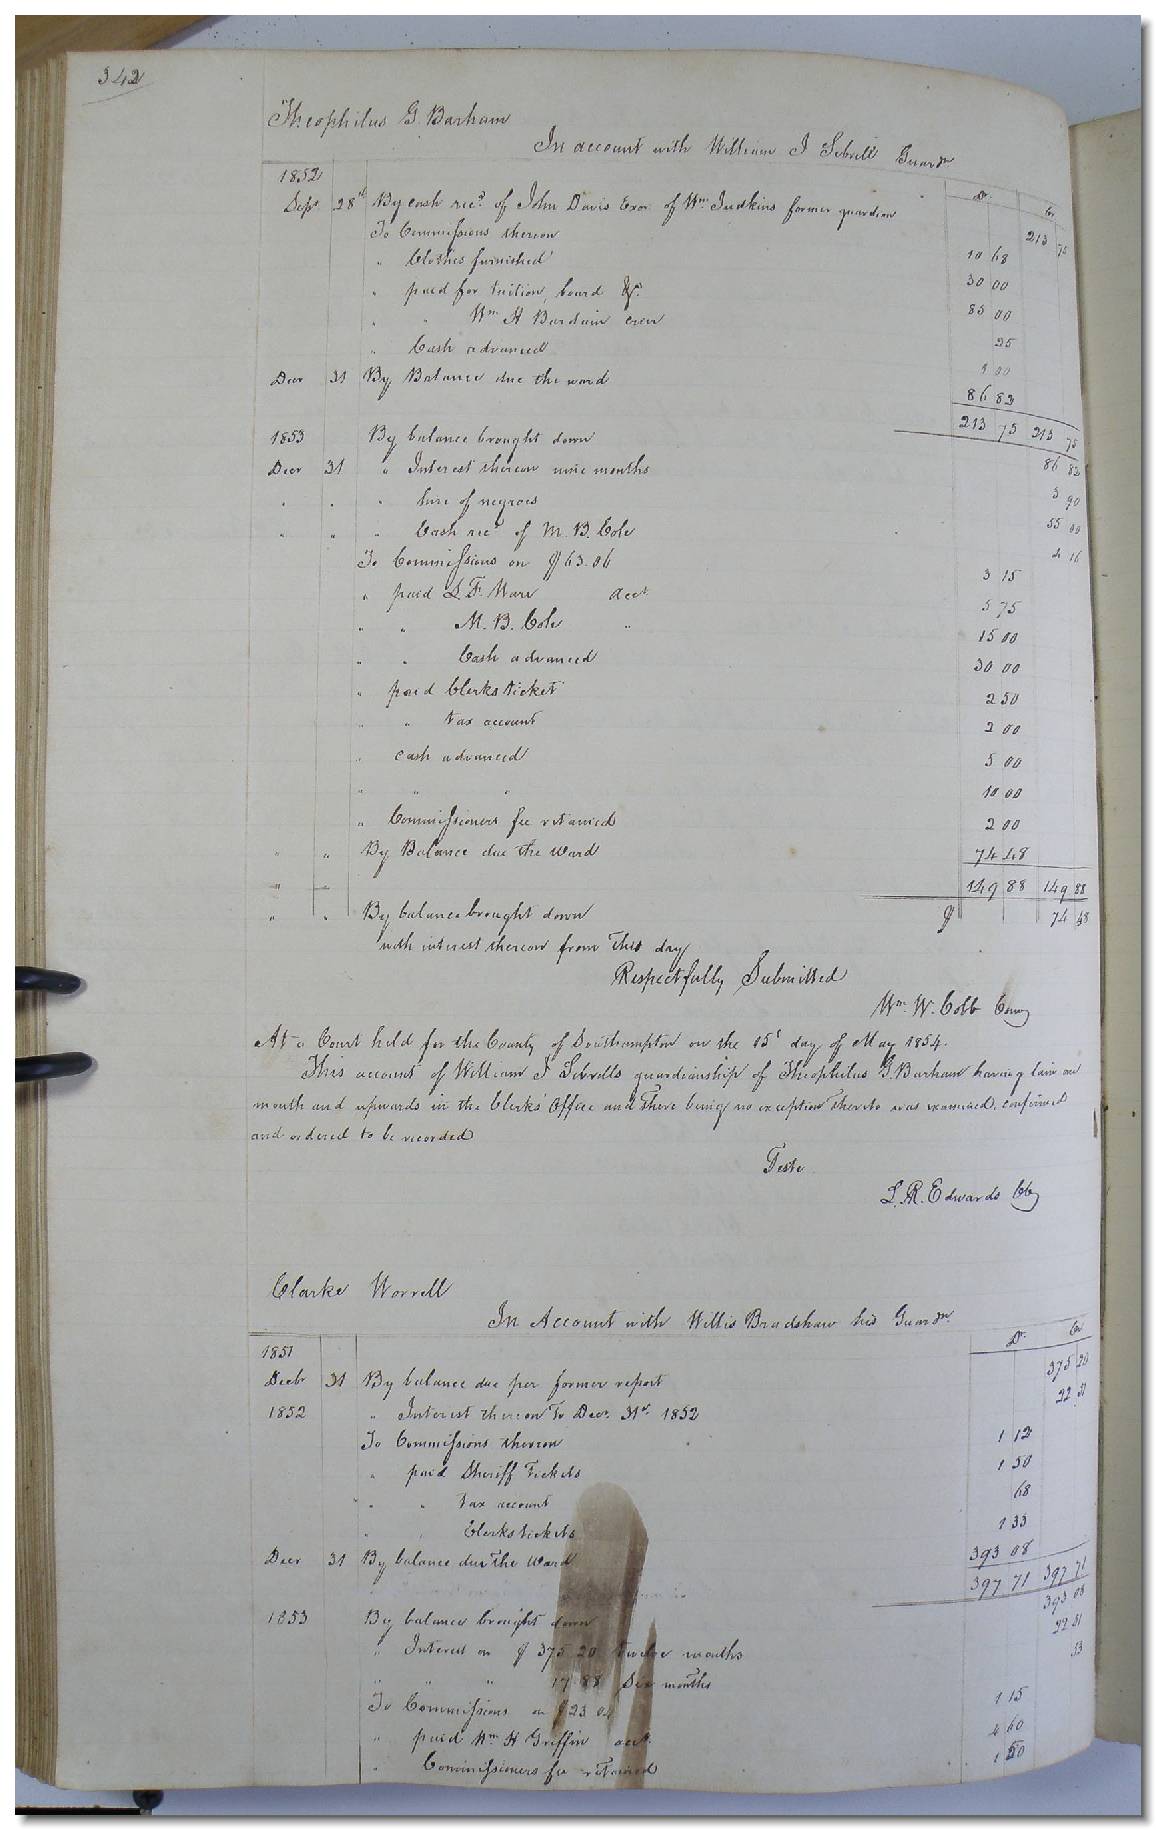 342
Theophilus G. Barham
In account with William J Sebrell Guardn
Dr. Cr
1852
Sept 28th By cash recd. of John Davis Exor of Wm Judkins former guardian 213 75
To Commissions thereon 10 68
" Clothes furnished 30 00
" paid for tuition, board &c. 85 00
" " Wm H Bardain 25
" Cash advanced 1 00
Decr 31 By Balance due the ward 86 82
213 75 213 75
1853 By balance brought down 86 82
Decr 31 " Interest thereon nine months 3 90
" " " hire of negroes 55 00
" " " Cash recd of M. B. Cole 4 16
To Commissions on $63.06 3 15
" paid L. F. Ware acct 5 75
" " M. B. Cole " 15 00
" " Cash advanced 30 00
" paid Clerks ticket 2 50
" " tax account 2 00
" cash advanced 5 00
" " " 10 00
" Commissioners fee retained 2 00
" " By Balance due the Ward 74 48
149 88 149 88
" " By balance brought down $ 74 48
with interest thereon from this day
Respectfully Submitted
Wm. W. Cobb Comr
At a Court held for the County of Southampton on the 15t day of May 1854.
This account of William J Sebrells guardianship of Theophilus G. Barham having lain one
month and upwards in the Clerks' Office and there being no exception thereto was examined, confirmed
and ordered to be recorded
Teste
L. R. Edwards Clk
Clarke Worrell
In Account with Willis Bradshaw his Guardn.
Dr. Cr
1851
Decbr 31 By balance due per former report 375 20
1852 " Interest thereon to Decr. 31st. 1852 22 51
To Commissions thereon 1 12
" paid Sheriff Tickets 1 50
" " tax account 68
" " Clerks tickets 1 33
Decr 31 By balance due the Ward 393 08
397 71 397 71
1853 By balance brought down 393 08
" Interest on $ 375 20 twelve months 22 51
" " " 17 88 Six months 53
To Commissions on $23 04 1 15
" paid Wm H Griffin acct. 4 60
" Commissioners fee retained 1 50